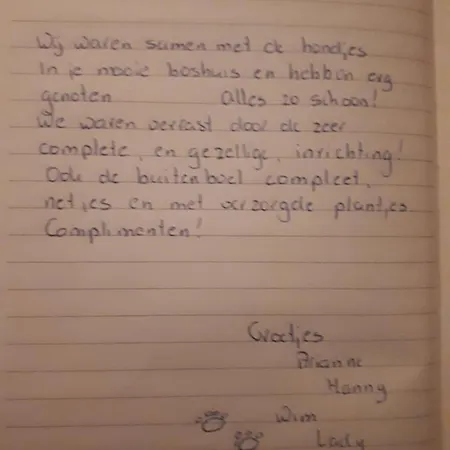 Wij waren samen met de hondjes
In je mooie boshuis en hebben erg
genoten alles zo schoon!
We waren verrast door de zeer
complete, en gezellige, inrichting!
Ook de buitenboel compleet,
netjes en met verzorgde plantjes.
Complimenten!
Groetjes
Brianne
Hanny
Wim
Lady